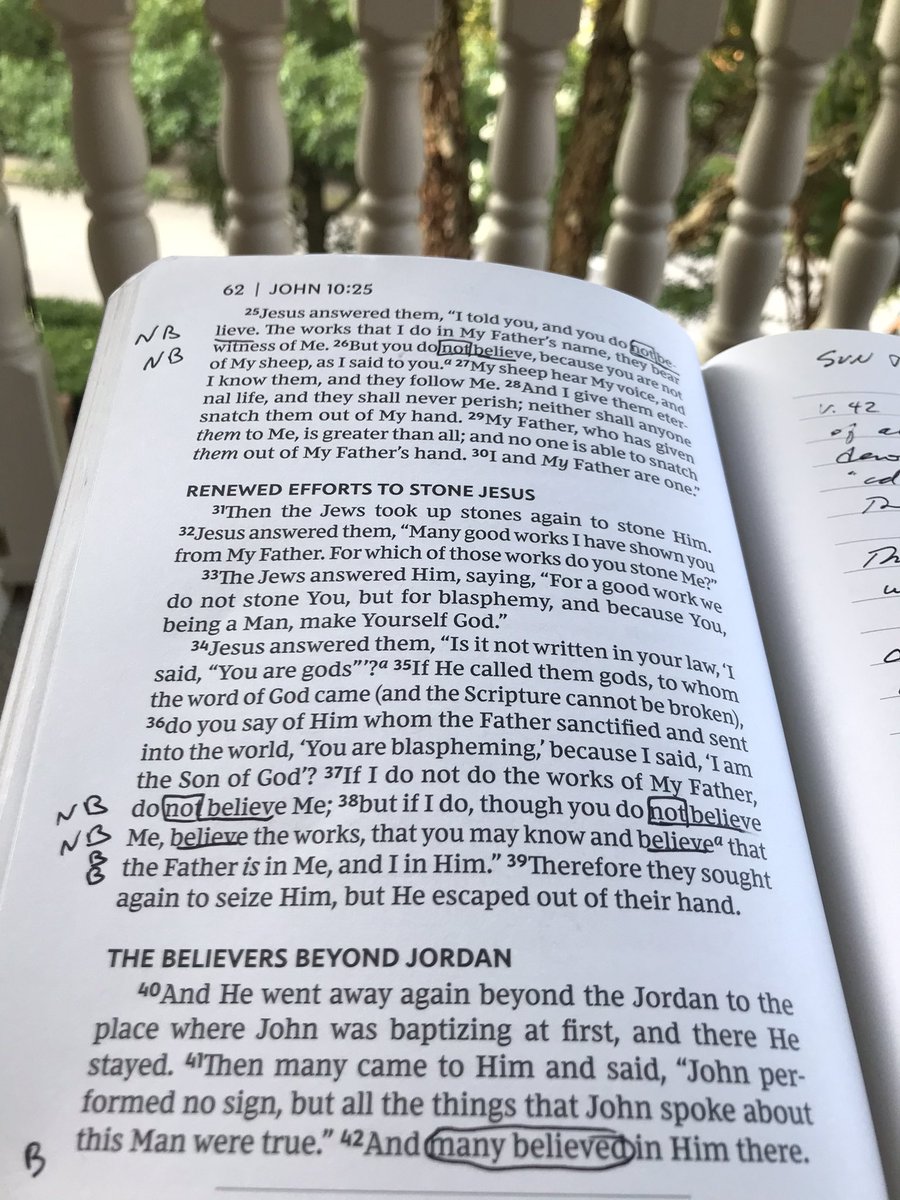 62 | JOHN 10:25
25Jesus answered them, “I told you, and you do not be-
NB lieve. The works that I do in My Father’s name, they bear
NB witness of Me. 26But you do not believe, because you are not
of My sheep, as I said to you.a 27My sheep hear My voice, and
I know them, and they follow Me. 28And I give them eter-
nal life, and they shall never perish; neither shall anyone
snatch them out of My hand. 29My Father, who has given
them to Me, is greater than all; and no one is able to snatch
them out of My Father’s hand. 30I and My Father are one.”
RENEWED EFFORTS TO STONE JESUS
31Then the Jews took up stones again to stone Him.
32Jesus answered them, “Many good works I have shown you
from My Father. For which of those works do you stone Me?”
33The Jews answered Him, saying, “For a good work we
do not stone You, but for blasphemy, and because You,
being a Man, make Yourself God.”
34Jesus answered them, “Is it not written in your law, ‘I
said, “You are gods”’?a 35If He called them gods, to whom
the word of God came (and the Scripture cannot be broken),
36do you say of Him whom the Father sanctified and sent
into the world, ‘You are blaspheming,’ because I said, ‘I am
the Son of God’? 37If I do not do the works of My Father,
NB do not believe Me; 38but if I do, though you do not believe
NB Me, believe the works, that you may know and believea that
B B the Father is in Me, and I in Him.” 39Therefore they sought
again to seize Him, but He escaped out of their hand.
THE BELIEVERS BEYOND JORDAN
40And He went away again beyond the Jordan to the
place where John was baptizing at first, and there He
stayed. 41Then many came to Him and said, “John per-
formed no sign, but all the things that John spoke about
B this Man were true.” 42And many believed in Him there.
SUN
v. 42
of